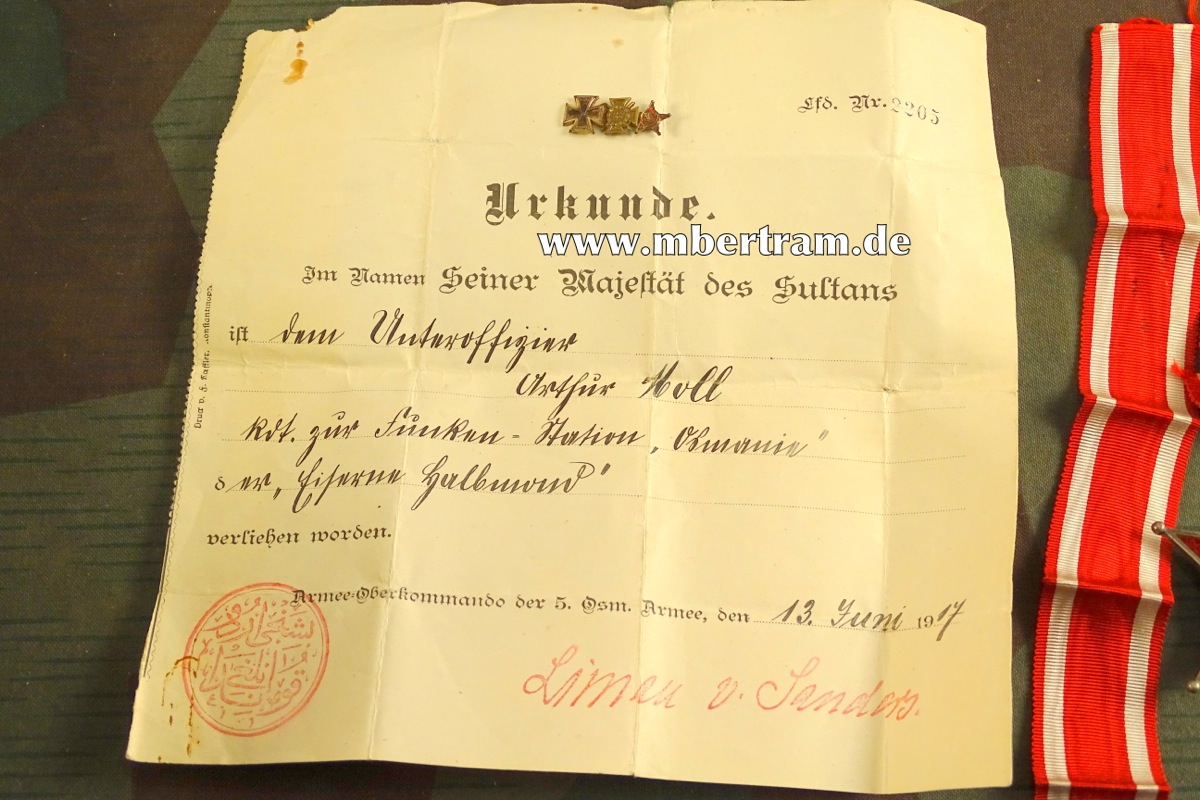 Lfd. Nr. 2205
Urkunde.
www.mbertram.de
Im Namen Seiner Majestät des Sultans
ist dem Unteroffizier
Arthur Moll
kdt. zur Funken-Station „Osmanie"
der „Eiserne Halbmond"
verliehen worden.
Armee-Oberkommando der 5. Osm. Armee, den 13. Juni 1917
Liman v. Sanders.
Druck v. F. Haffler, Konstantinopel